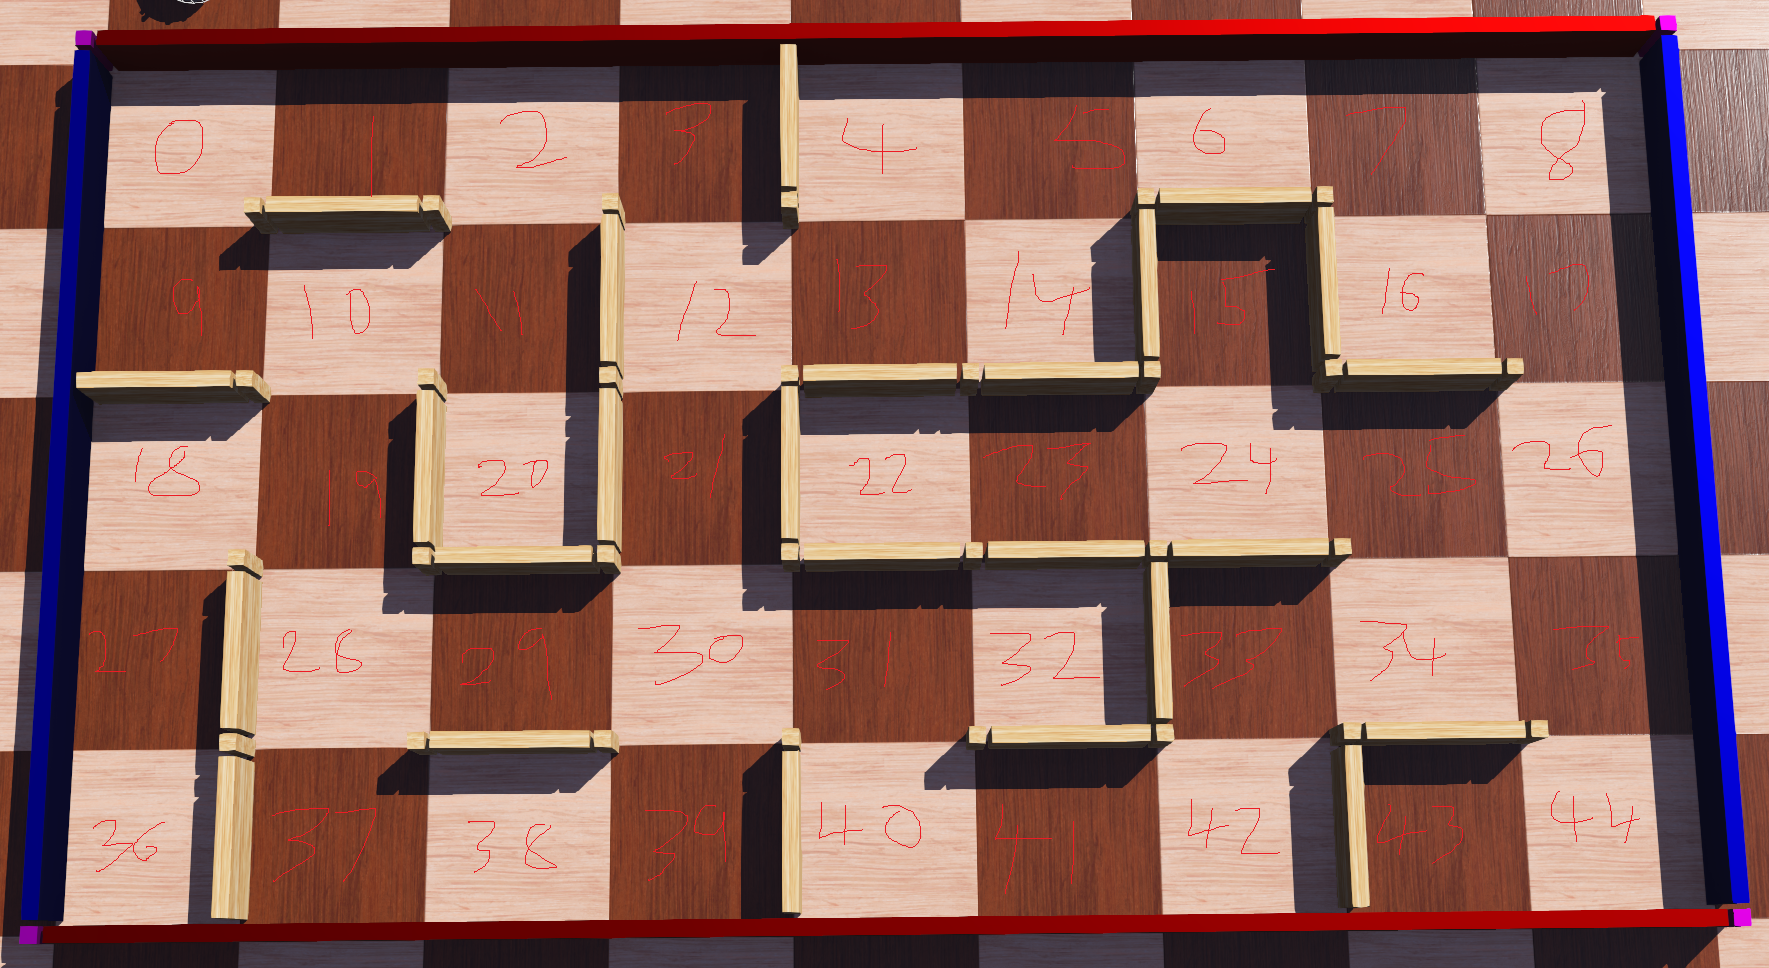 0 1 2 3 4 5 6 7 8
9 10 11 12 13 14 15 16 17
18 19 20 21 22 23 24 25 26
27 28 29 30 31 32 33 34 35
36 37 38 39 40 41 42 43 44